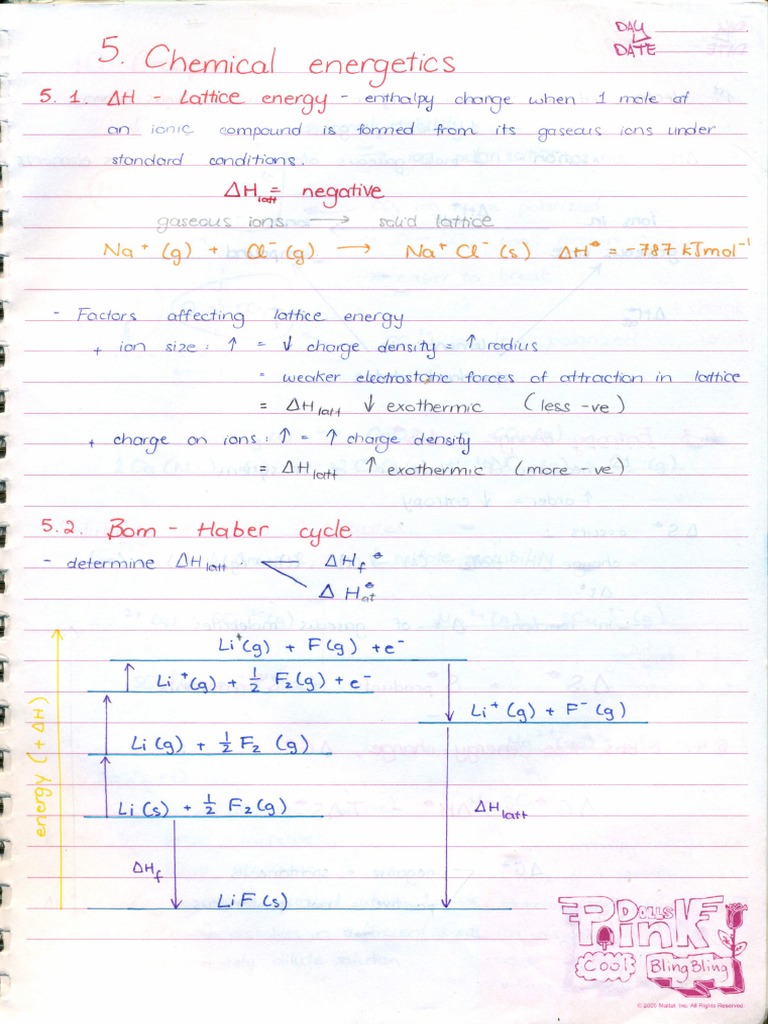 DAY
DATE
5. Chemical energetics
5. 1. ΔH - Lattice energy - enthalpy change when 1 mole of
an ionic compound is formed from its gaseous ions under
standard conditions.
ΔHlatt = negative
gaseous ions → solid lattice
Na⁺ (g) + Cl⁻ (g) → Na⁺ Cl⁻ (s) ΔH° = -787 kJmol⁻¹
- Factors affecting lattice energy
+ ion size : ↑ = ↓ charge density = ↑ radius
= weaker electrostatic forces of attraction in lattice
= ΔHlatt ↓ exothermic (less -ve)
+ charge on ions : ↑ = ↑ charge density
= ΔHlatt ↑ exothermic (more -ve)
5.2. Born - Haber cycle
- determine ΔHlatt : ΔHf°
ΔHat°
Li⁺(g) + F(g) + e⁻
Li⁺(g) + ½ F₂(g) + e⁻
Li⁺(g) + F⁻(g)
Li(g) + ½ F₂ (g)
Li(s) + ½ F₂(g)
ΔHlatt
ΔHf
LiF(s)
energy (+ ΔH)
DOLLS
PINK
Cool
Bling Bling
© 2005 Mattel, Inc. All Rights Reserved.